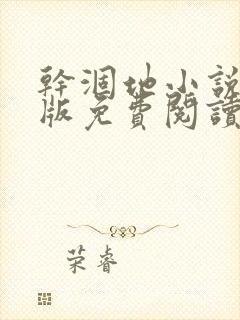 幹涸地小說
版免費閱讀
荣睿